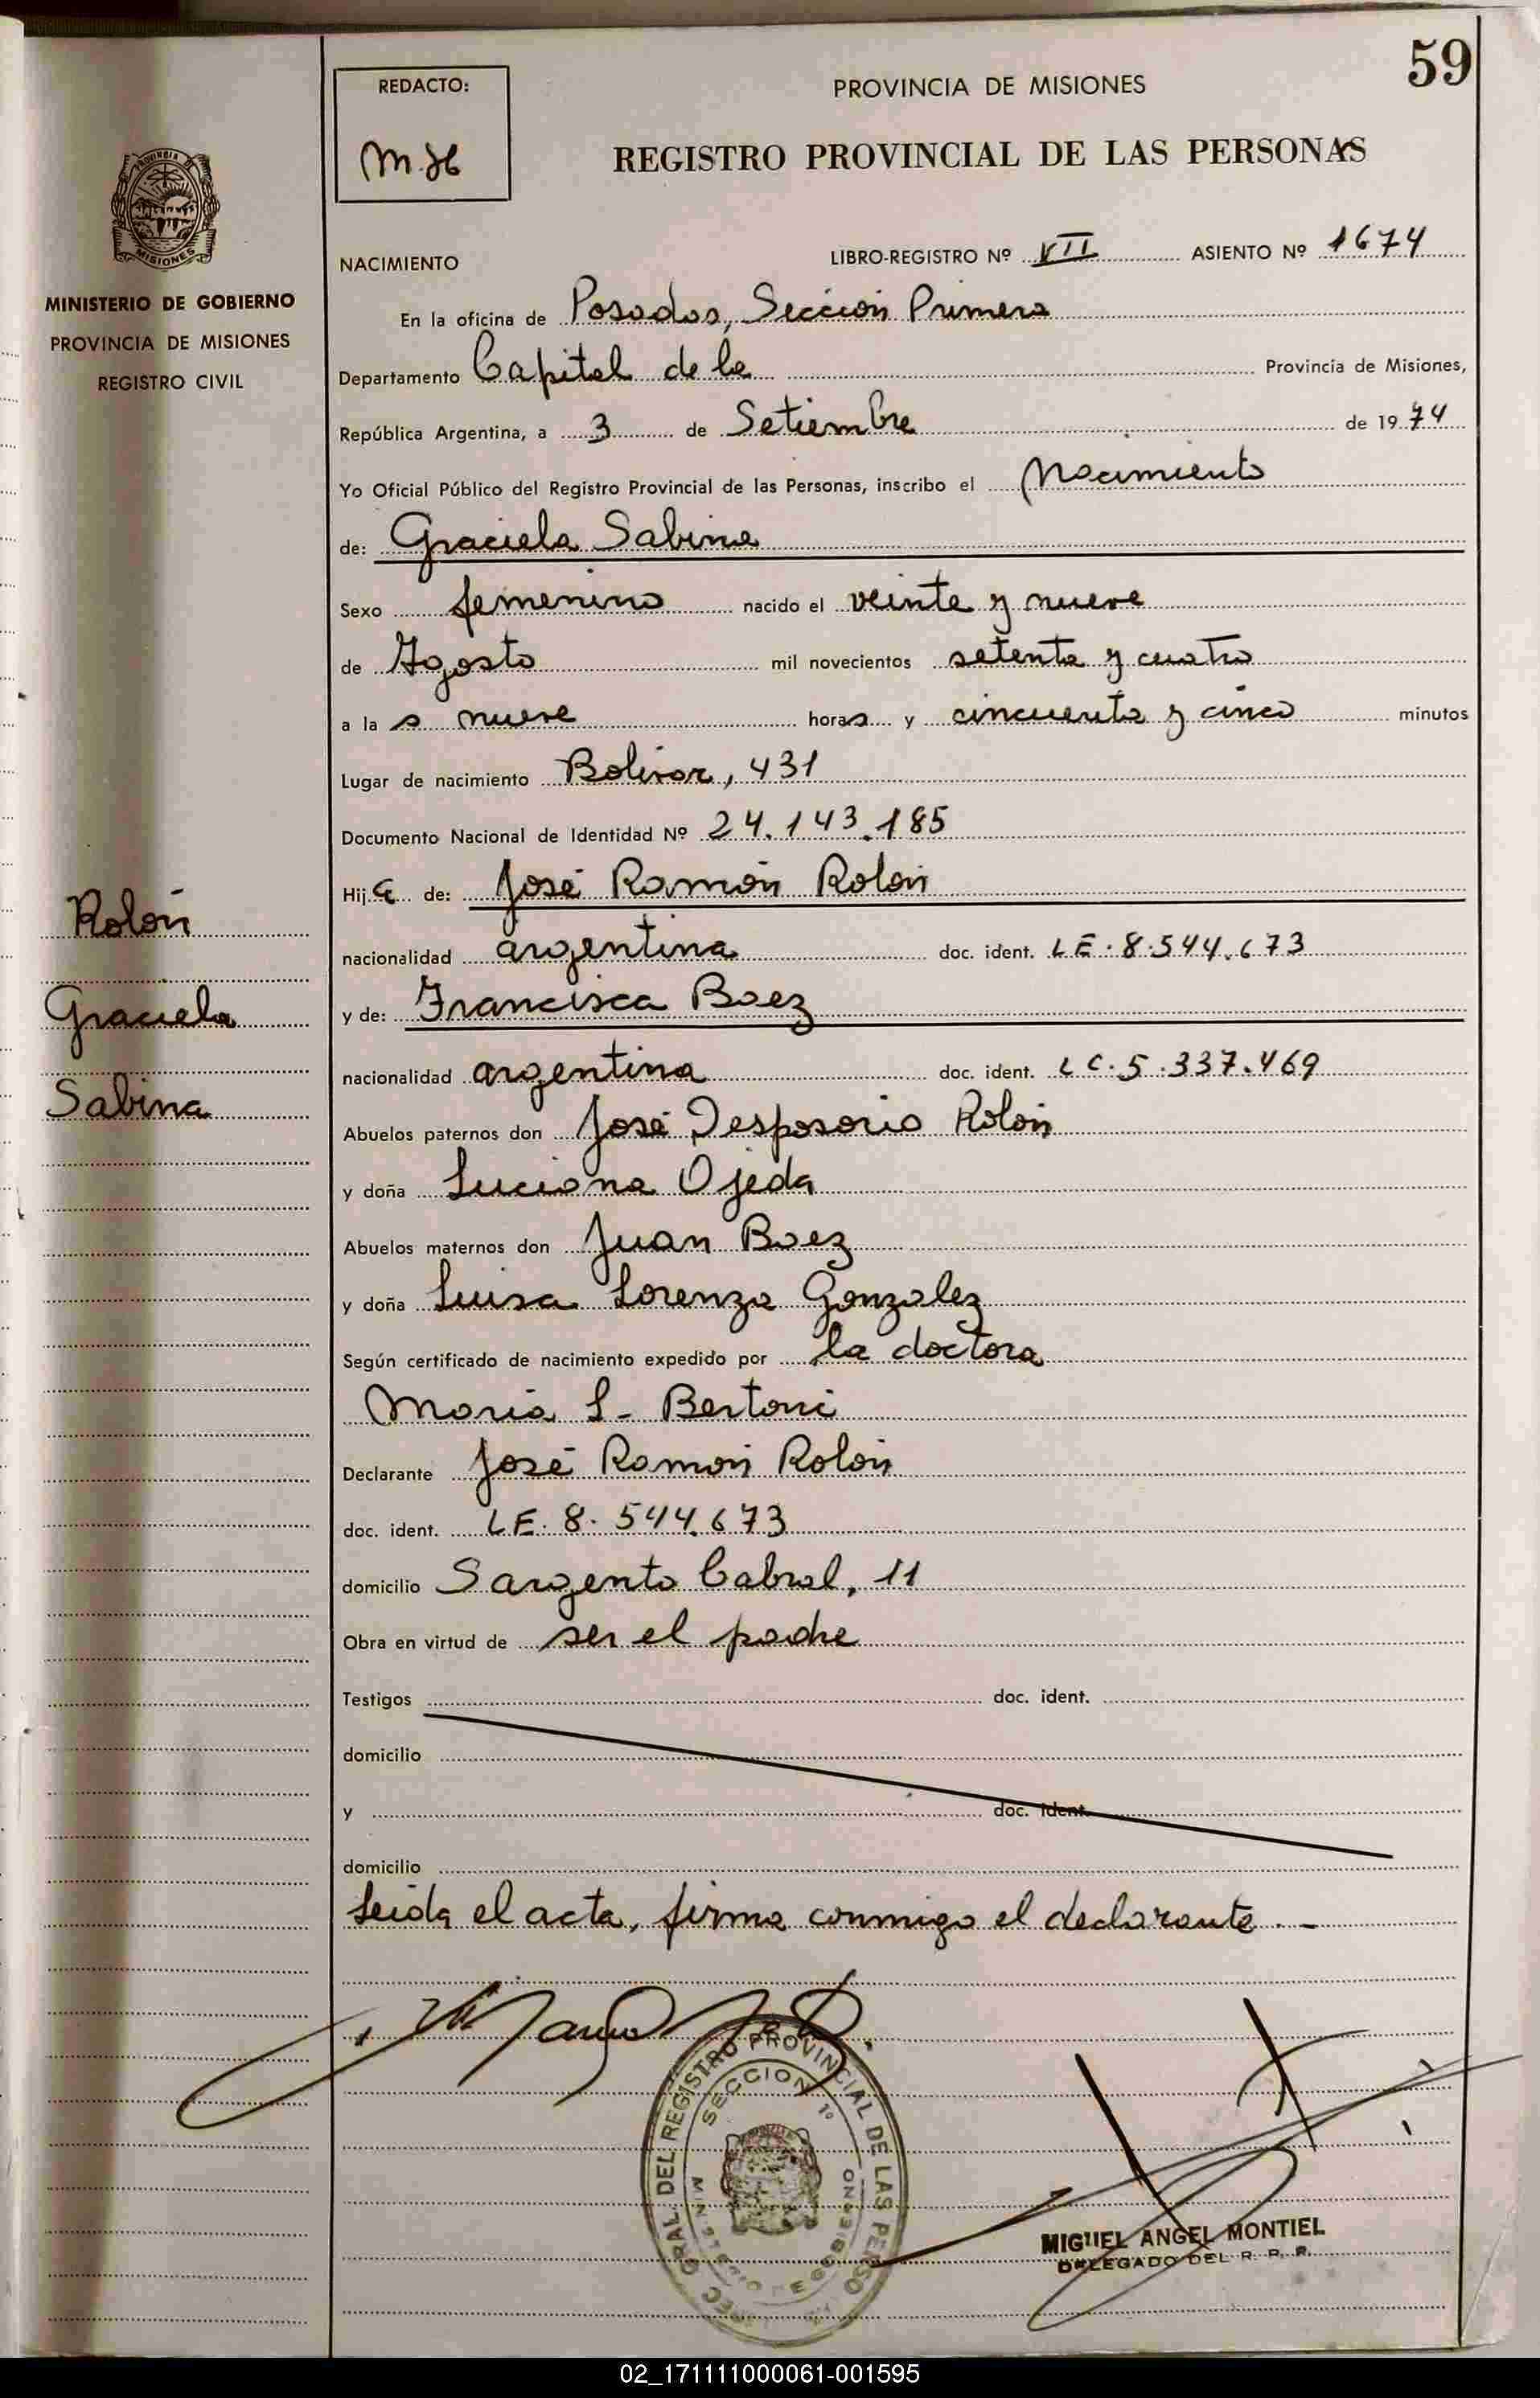 59
REDACTO:
M.H
PROVINCIA DE MISIONES
REGISTRO PROVINCIAL DE LAS PERSONAS
MISIONES
MINISTERIO DE GOBIERNO
PROVINCIA DE MISIONES
REGISTRO CIVIL
NACIMIENTO LIBRO-REGISTRO Nº VII ASIENTO Nº 1674
En la oficina de Posadas, Sección Primera
Departamento Capital de la Provincia de Misiones,
República Argentina, a 3 de Setiembre de 1974
Yo Oficial Público del Registro Provincial de las Personas, inscribo el Nacimiento
de: Graciela Sabina
Sexo femenino nacido el veinte y nueve
de Agosto mil novecientos setenta y cuatro
a la s nueve horas y cincuenta y cinco minutos
Lugar de nacimiento Bolivar, 431
Documento Nacional de Identidad Nº 24.143.185
Hija de: José Ramón Rolón
nacionalidad argentina doc. ident. LE. 8.544.673
y de: Francisca Baez
nacionalidad argentina doc. ident. LC. 5.337.469
Abuelos paternos don José Desposorio Rolón
y doña Luciana Ojeda
Abuelos maternos don Juan Baez
y doña Luisa Lorenza Gonzalez
Según certificado de nacimiento expedido por la doctora
Maria L- Bertoni
Declarante José Ramón Rolón
doc. ident. LE. 8. 544.673
domicilio Sargento Cabral, 11
Obra en virtud de ser el padre
Testigos doc. ident.
domicilio
y doc. ident.
domicilio
Leida el acta, firma conmigo el declarante.-
Rolón
Graciela
Sabina
DEL REGISTRO PROVINCIAL DE LAS PERSO
SECCION 1º
MINISTERIO DE GOBIERNO
MIGUEL ANGEL MONTIEL
DELEGADO DEL R. P. P.
02_171111000061-001595